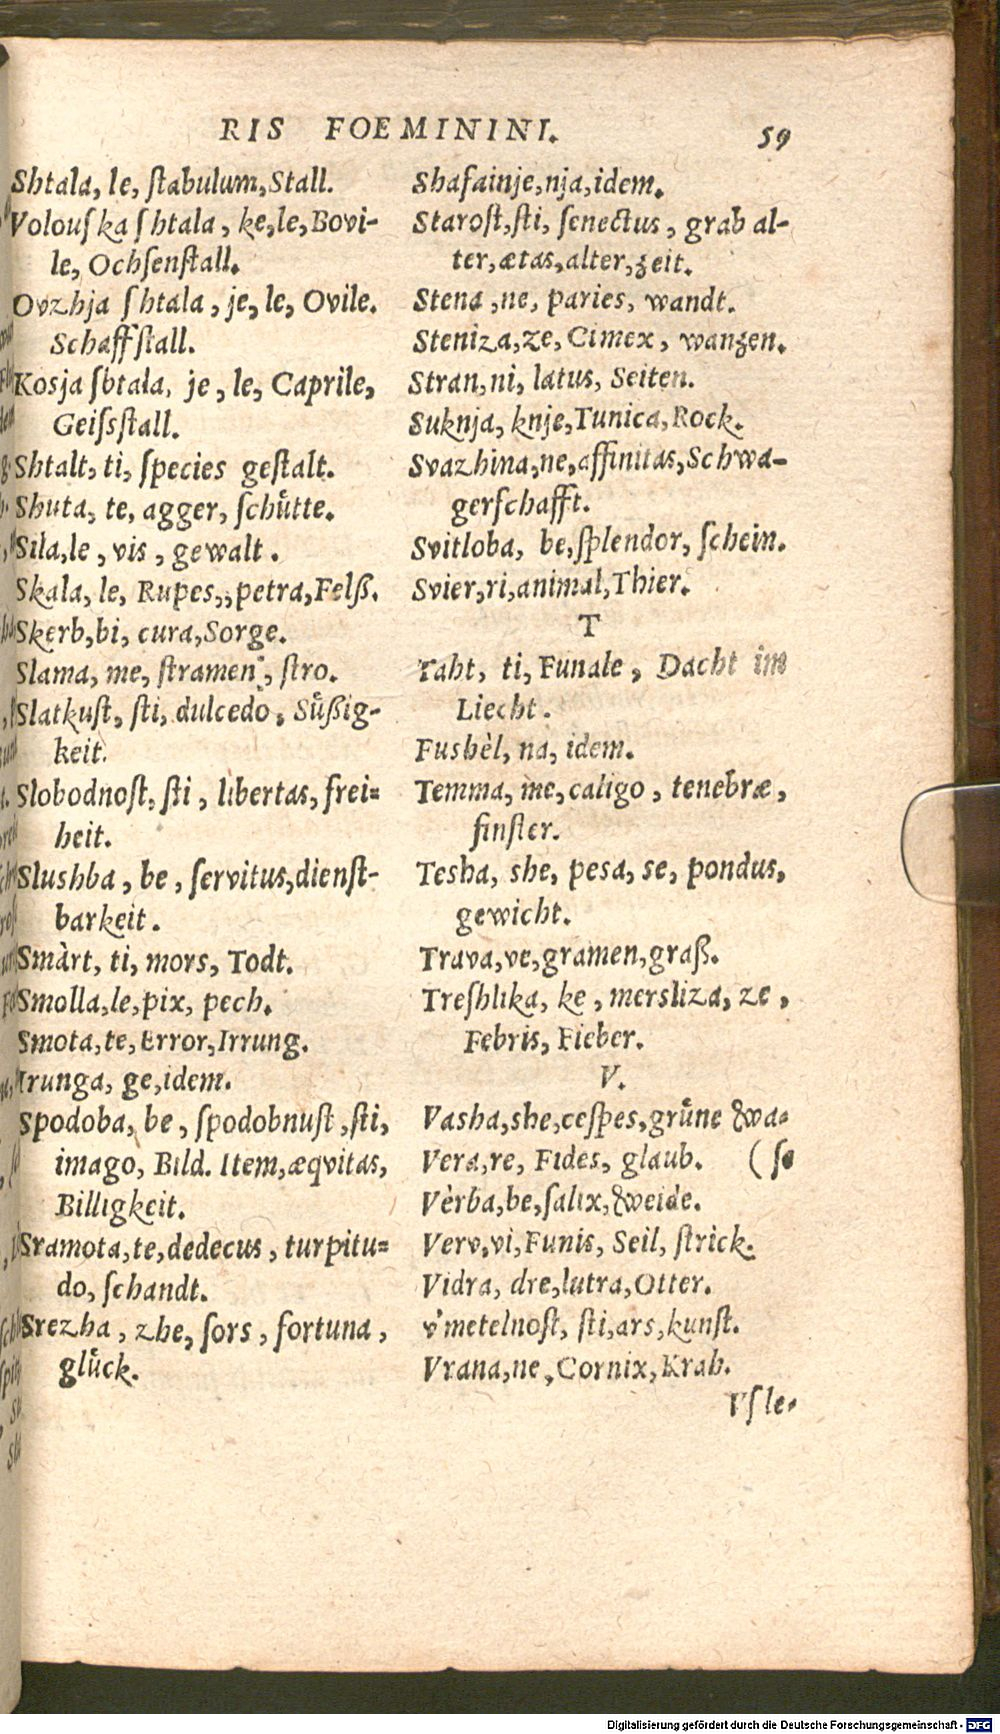 RIS FOEMININI. 59
Shtala, le, ſtabulum, Stall.
Volouſka ſhtala, ke, le, Bovi-
le, Ochſenſtall.
Ovzhja ſhtala, je, le, Ovile.
Schaffſtall.
Kosja ſbtala, je, le, Caprile,
Geiſsſtall.
Shtalt, ti, ſpecies geſtalt.
Shuta, te, agger, ſchuͤtte.
Sila, le, vis, gewalt.
Skala, le, Rupes,, petra, Felß.
Skerb, bi, cura, Sorge.
Slama, me, ſtramen, ſtro.
Slatkuſt, ſti, dulcedo, Suͤßig-
keit.
Slobodnoſt, ſti, libertas, frei-
heit.
Slushba, be, ſervitus, dienſt-
barkeit.
Smàrt, ti, mors, Todt.
Smolla, le, pix, pech.
Smota, te, Error, Irrung.
Irunga, ge, idem.
Spodoba, be, ſpodobnuſt, ſti,
imago, Bild. Item, æqvitas,
Billigkeit.
Sramota, te, dedecus, turpitu-
do, ſchandt.
Srezha, zhe, ſors, fortuna,
gluͤck.
Shafainje, nja, idem.
Staroſt, ſti, ſenectus, grab al-
ter, ætas, alter, zeit.
Stena, ne, paries, wandt.
Steniza, ze, Cimex, wanzen.
Stran, ni, latus, Seiten.
Suknja, knje, Tunica, Rock.
Svazhina, ne, affinitas, Schwa-
gerſchafft.
Svitloba, be, ſplendor, ſchein.
Svier, ri, animal, Thier.
T
Taht, ti, Funale, Dacht im
Liecht.
Fushèl, na, idem.
Temma, me, caligo, tenebræ,
finſter.
Tesha, she, pesa, se, pondus,
gewicht.
Trava, ve, gramen, graß.
Treſhlika, ke, mersliza, ze,
Febris, Fieber.
V.
Vasha, she, ceſpes, gruͤne Wa-
Vera, re, Fides, glaub. (ſe
Vèrba, be, ſalix, Weide.
Verv, vi, Funis, Seil, ſtrick.
Vidra, dre, lutra, Otter.
v'metelnoſt, ſti, ars, kunſt.
Vrana, ne, Cornix, Krab.
Vſle-
Digitalisierung gefördert durch die Deutsche Forschungsgemeinschaft - DFG